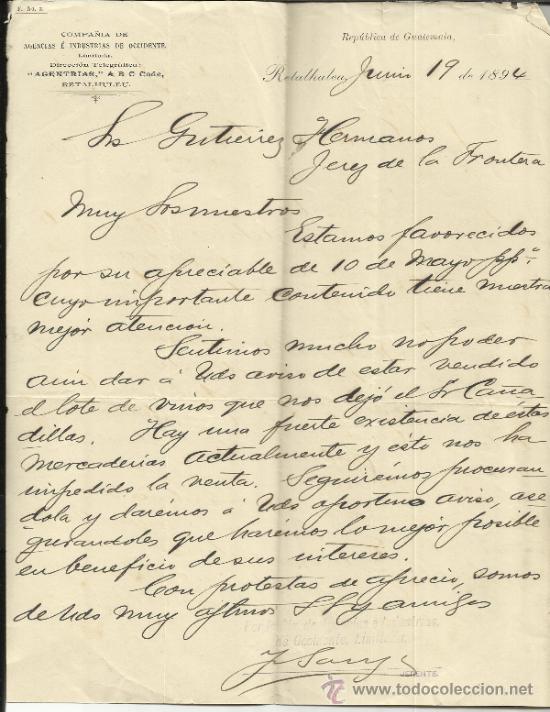 COMPAÑÍA DE
AGENCIAS É INDUSTRIAS DE OCCIDENTE
Limitada.
Dirección Telegráfica:
"AGENTRIAS," A B C Code,
RETALHULEU.
República de Guatemala,
Retalhuleu, Junio 19 de 1894
Srs Gutierrez Hermanos
Jerez de la Frontera
Muy Srs nuestros
Estamos favorecidos
por su apreciable de 10 de Mayo ppº
cuyo importante contenido tiene nuestra
mejor atención.
Sentimos mucho no poder
aún dar á Uds aviso de estar vendido
el lote de vinos que nos dejó el Sr Caña
dillas. Hay una fuerte existencia de éstas
mercaderías actualmente y ésto nos ha
impedido la venta. Seguirémos procuran
dola y darémos á Uds oportuno aviso, ase
gurandoles que harémos lo mejor posible
en beneficio de sus intereses.
Con protestas de aprecio, somos
de Uds muy attmos SS y amigos
Por la Cía de Agencias é Industrias,
de Occidente, Limitada.
JERENTE.
todocoleccion
www.todocoleccion.net